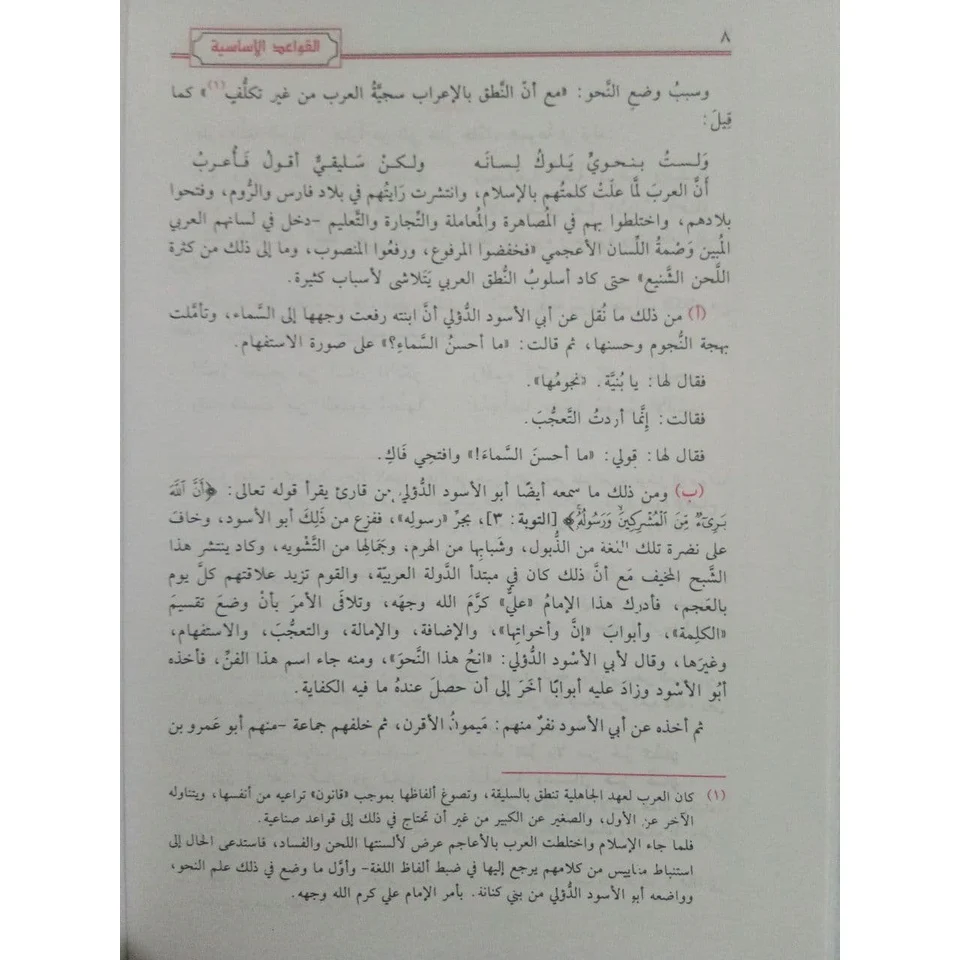 ٨
القواعد الأساسية
وسببُ وضعِ النَّحو: «مع أنّ النَّطق بالإعراب سجيَّةُ العرب من غير تكلُّفٍ(١)» كما
قِيلَ:
وَلستُ بنحويٍّ يَلوكُ لِسانَه ولكنْ سَليقيٌّ أقولُ فَأُعربُ
أنَّ العربَ لمَّا علَتْ كلمتُهم بالإسلام، وانتشرت رَايتُهم في بلاد فارس والرُّوم، وفتحوا
بلادهم، واختلطوا بهم في المُصاهرة والمُعاملة والتِّجارة والتَّعليم -دخل في لسانهم العربي
المُبين وَصْمةُ اللِّسان الأعجمي «فخفضوا المرفوع، ورفعُوا المنصوب، وما إلى ذلك من كثرة
اللَّحن الشَّنيع» حتى كاد أسلوبُ النُّطق العربي يَتَلاشى لأسباب كثيرة.
(أ) من ذلك ما نُقل عن أبي الأسود الدُّؤلي أنَّ ابنته رفعت وجهها إلى السَّماء، وتأمَّلت
بهجة النُّجوم وحسنها، ثم قالت: «ما أحسنُ السَّماءِ؟» على صورة الاستفهام.
فقال لها: يا بُنيَّة. «نجومُها».
فقالت: إنَّما أردتُ التَّعجُّبَ.
فقال لها: قولي: «ما أحسنَ السَّماءَ!» وافتحِي فَاكِ.
(ب) ومن ذلك ما سمعه أيضًا أبو الأسود الدُّؤلي من قارئ يقرأ قوله تعالى: ﴿أَنَّ ٱللَّهَ
بَرِىٓءٌ مِّنَ ٱلْمُشْرِكِينَ وَرَسُولُهُۥ﴾ [التوبة: ٣]، بجرِّ «رسولِه»، ففزع من ذَلِكَ أبو الأسود، وخافَ
على نضرة تلك اللغة من الذُّبول، وشَبابِها من الهرم، وجَمَالها من التَّشْويه، وكاد ينتشر هذا
الشَّبح المخيف مَع أنَّ ذلك كان في مبتدأ الدَّولة العربيّة، والقوم تزيد علاقتهم كلَّ يوم
بالعَجم، فأدرك هذا الإمامُ «عليٌّ» كرَّمَ الله وجهَه، وتلافَى الأمرَ بأنْ وضعَ تقسيمَ
«الكلِمة»، وأبوابَ «إنَّ وأخواتِها»، والإضافة، والإمالة، والتعجُّبَ، والاستفهام،
وغيرَها، وقال لأبي الأسْود الدُّؤلي: «انحُ هذا النَّحوَ»، ومنه جاء اسم هذا الفنِّ، فأخذه
أبُو الأسْود وزادَ عليه أبوابًا أخَرَ إلى أن حصلَ عندهُ ما فيه الكفاية.
ثم أخذه عن أبي الأسود نفرٌ منهم: مَيمونُ الأقرن، ثم خلفهم جماعة -منهم أبو عَمرو بن
(١) كان العرب لعهد الجاهلية تنطق بالسليقة، وتصوغ ألفاظها بموجب «قانون» تراعيه من أنفسها، ويتناوله
الآخر عن الأول، والصغير عن الكبير من غير أن تحتاج في ذلك إلى قواعد صناعية.
فلما جاء الإسلام واختلطت العرب بالأعاجم عرض لألسنتها اللحن والفساد، فاستدعى الحال إلى
استنباط مقاييس من كلامهم يرجع إليها في ضبط ألفاظ اللغة- وأوَّل ما وضع في ذلك علم النحو،
وواضعه أبو الأسود الدُّؤلي من بني كنانة. بأمر الإمام علي كرم الله وجهه.